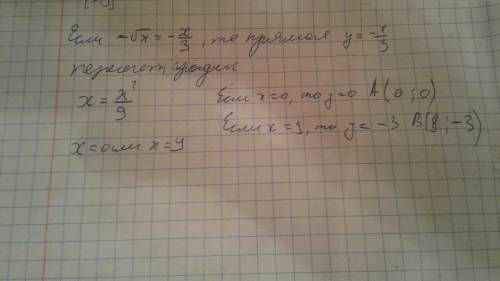 Если -√x = -x/3, то прямая y = -x/3
пересечет график
x = x²/9
Если x=0, то y=0 A(0;0)
Если x=9, то y=-3 B(9;-3)
x=0 или x=9